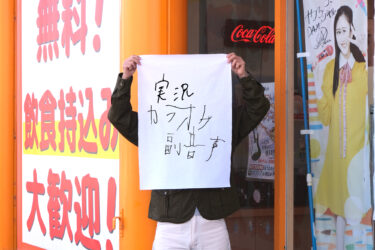 無料!
飲食持込み
大歓迎!
Coca-Cola
実況
カラオケ
副音声